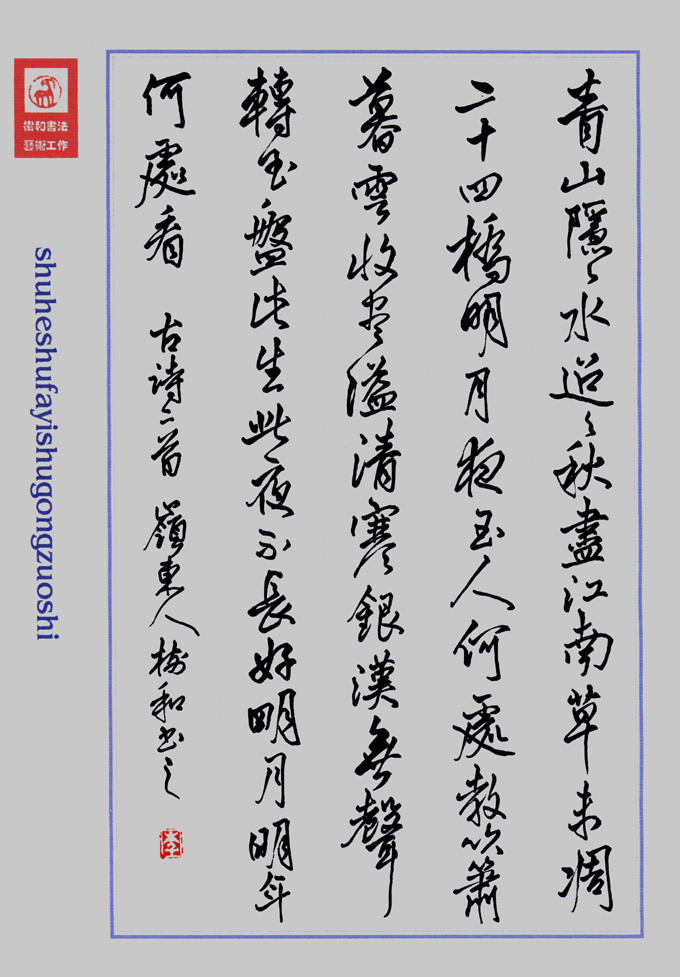 青山隱々水迢々秋盡江南草未凋
二十四橋明月夜玉人何處教吹簫
暮雲收尽溢清寒銀漢無聲
轉玉盤此生此夜不長好明月明年
何處看 古詩二首 嶺東人樹和書之
李
樹和書法
藝術工作
shuheshufayishugongzuoshi